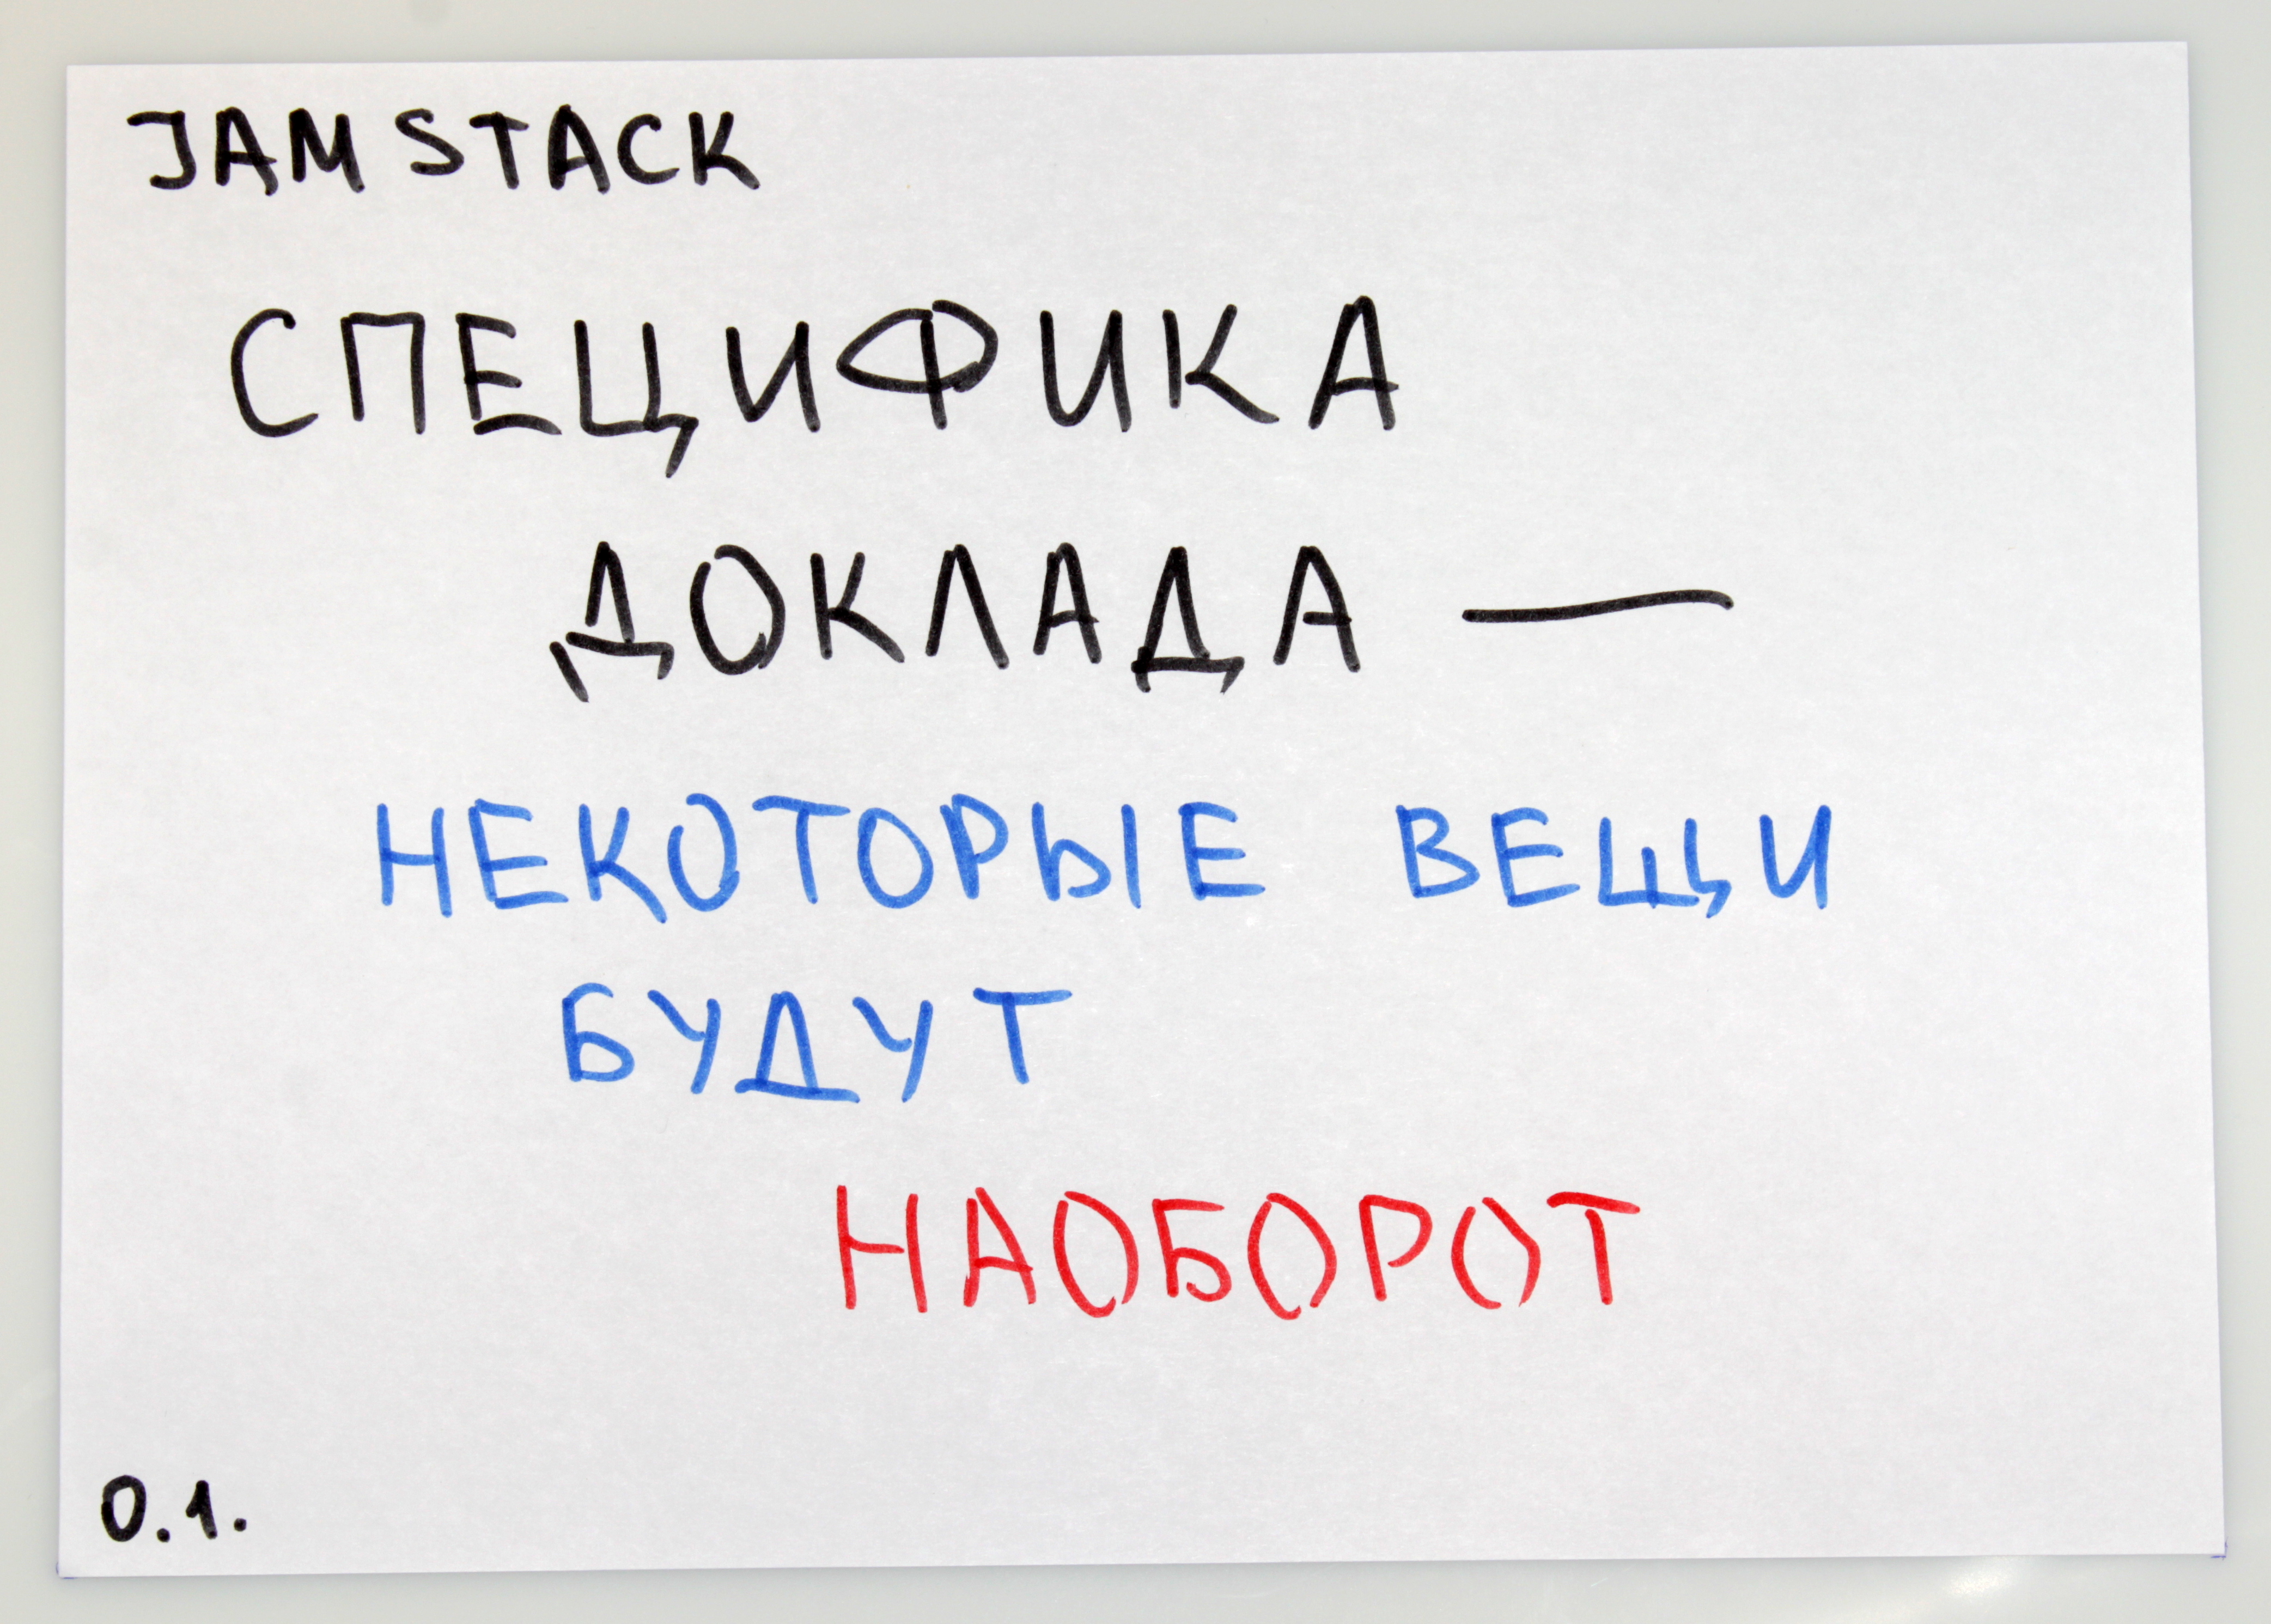 JAM STACK
СПЕЦИФИКА
ДОКЛАДА —
НЕКОТОРЫЕ ВЕЩИ
БУДУТ
НАОБОРОТ
0.1.